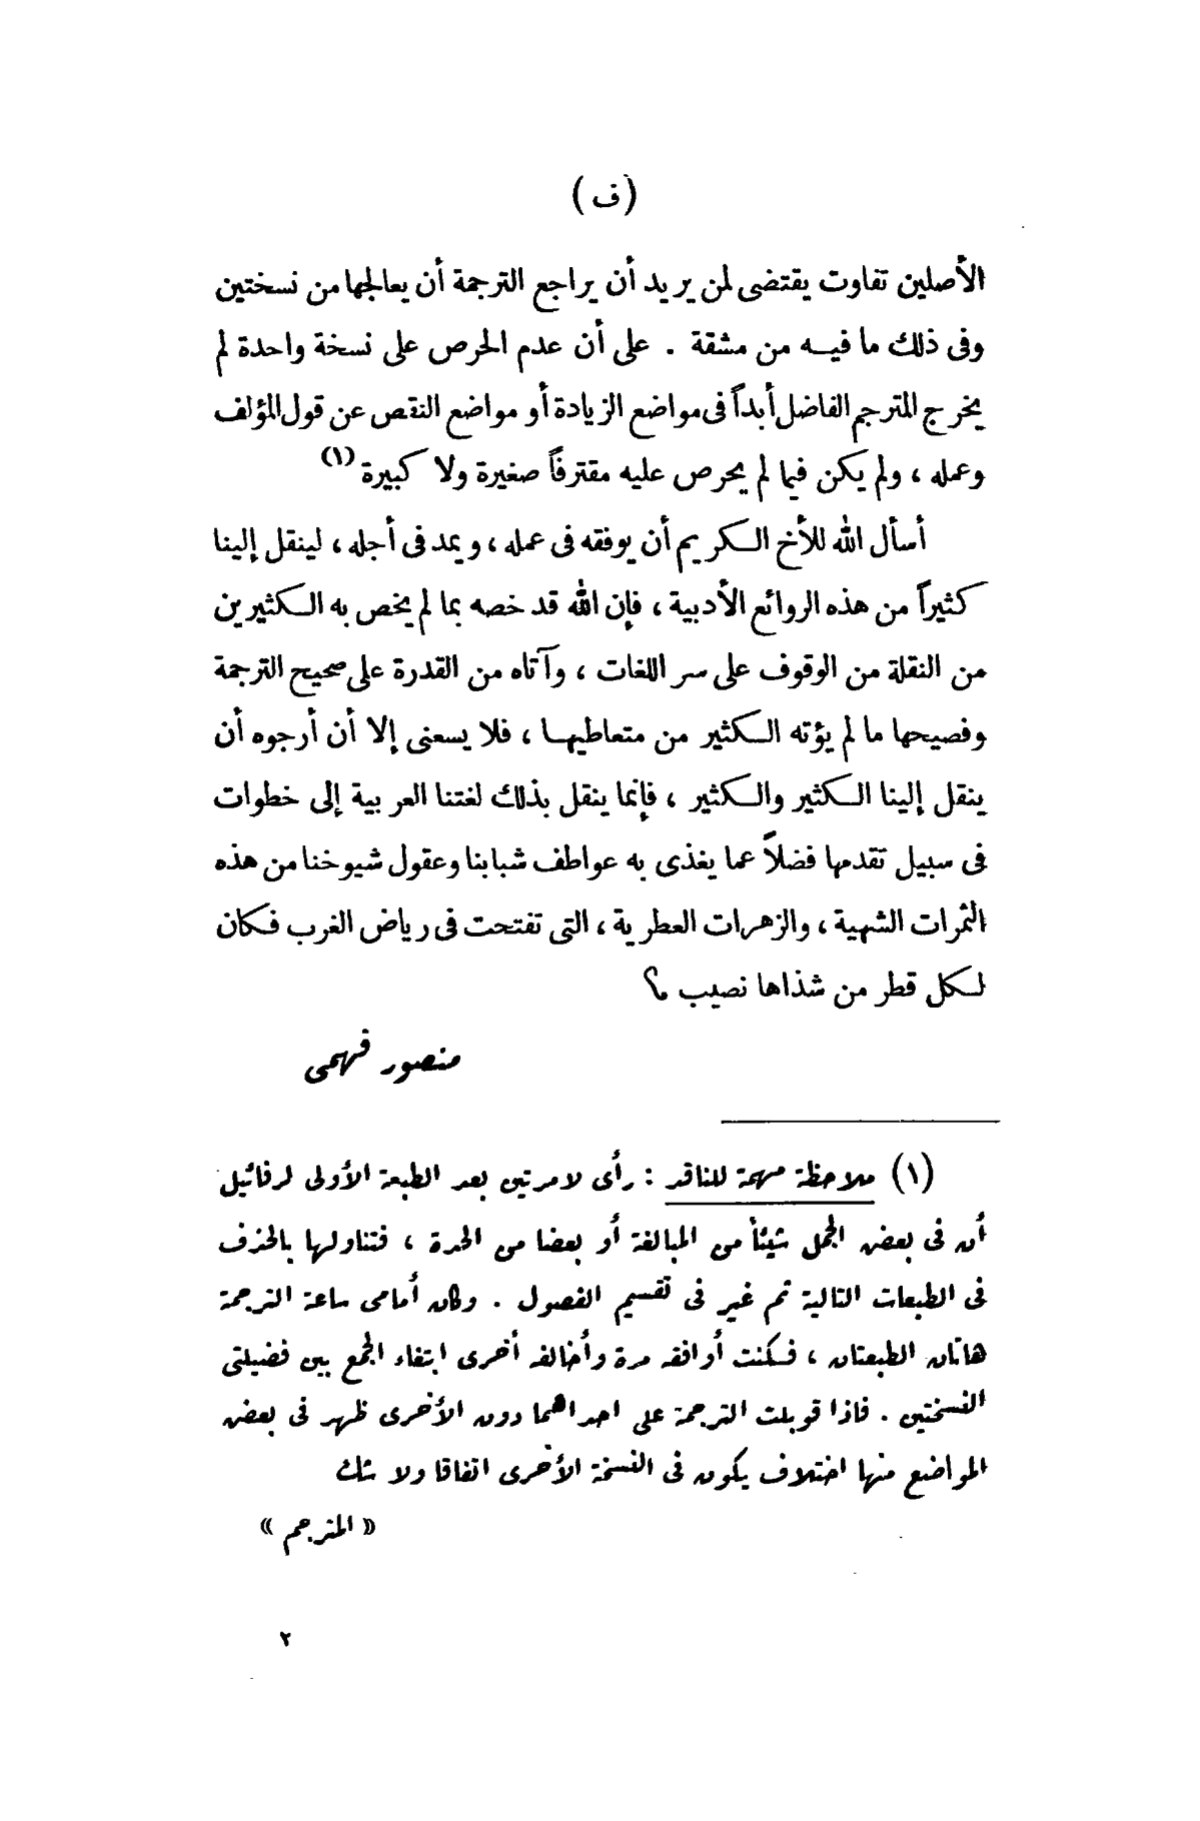 (ف)
الأصلين تفاوت يقتضى لمن يريد أن يراجع الترجمة أن يعالجها من نسختين
وفى ذلك ما فيه من مشقة . على أن عدم الحرص على نسخة واحدة لم
يخرج المترجم الفاضل أبداً فى مواضع الزيادة أو مواضع النقص عن قول المؤلف
وعمله ، ولم يكن فيما لم يحرص عليه مقترفاً صغيرة ولا كبيرة (١)
أسأل الله للأخ الكريم أن يوفقه فى عمله ، ويمد فى أجله ، لينقل إلينا
كثيراً من هذه الروائع الأدبية ، فإن الله قد خصه بما لم يخص به الكثيرين
من النقلة من الوقوف على سر اللغات ، وآتاه من القدرة على صحيح الترجمة
وفصيحها ما لم يؤته الكثير من متعاطيها ، فلا يسعنى إلا أن أرجوه أن
ينقل إلينا الكثير والكثير ، فإنما ينقل بذلك لغتنا العربية إلى خطوات
فى سبيل تقدمها فضلاً عما يغذى به عواطف شبابنا وعقول شيوخنا من هذه
الثمرات الشهية ، والزهرات العطرية ، التى تفتحت فى رياض الغرب فكان
لكل قطر من شذاها نصيب ؟
منصور فهمى
(١) ملاحظة مهمة للناقد : رأى لامرتين بعد الطبعة الأولى لرفائيل
أن فى بعض الجمل شيئاً من المبالغة أو بعضا من الحدة ، فتناولها بالحذف
فى الطبعات التالية ثم غير فى تقسيم الفصول . وكان أمامى ساعة الترجمة
هاتان الطبعتان ، فكنت أوافقه مرة وأخالفه أخرى ابتغاء الجمع بين فضيلتى
النسختين . فاذا قوبلت الترجمة على احداهما دون الأخرى ظهر فى بعض
المواضع منها اختلاف يكون فى النسخة الأخرى اتفاقا ولا شك
« المترجم »
٢